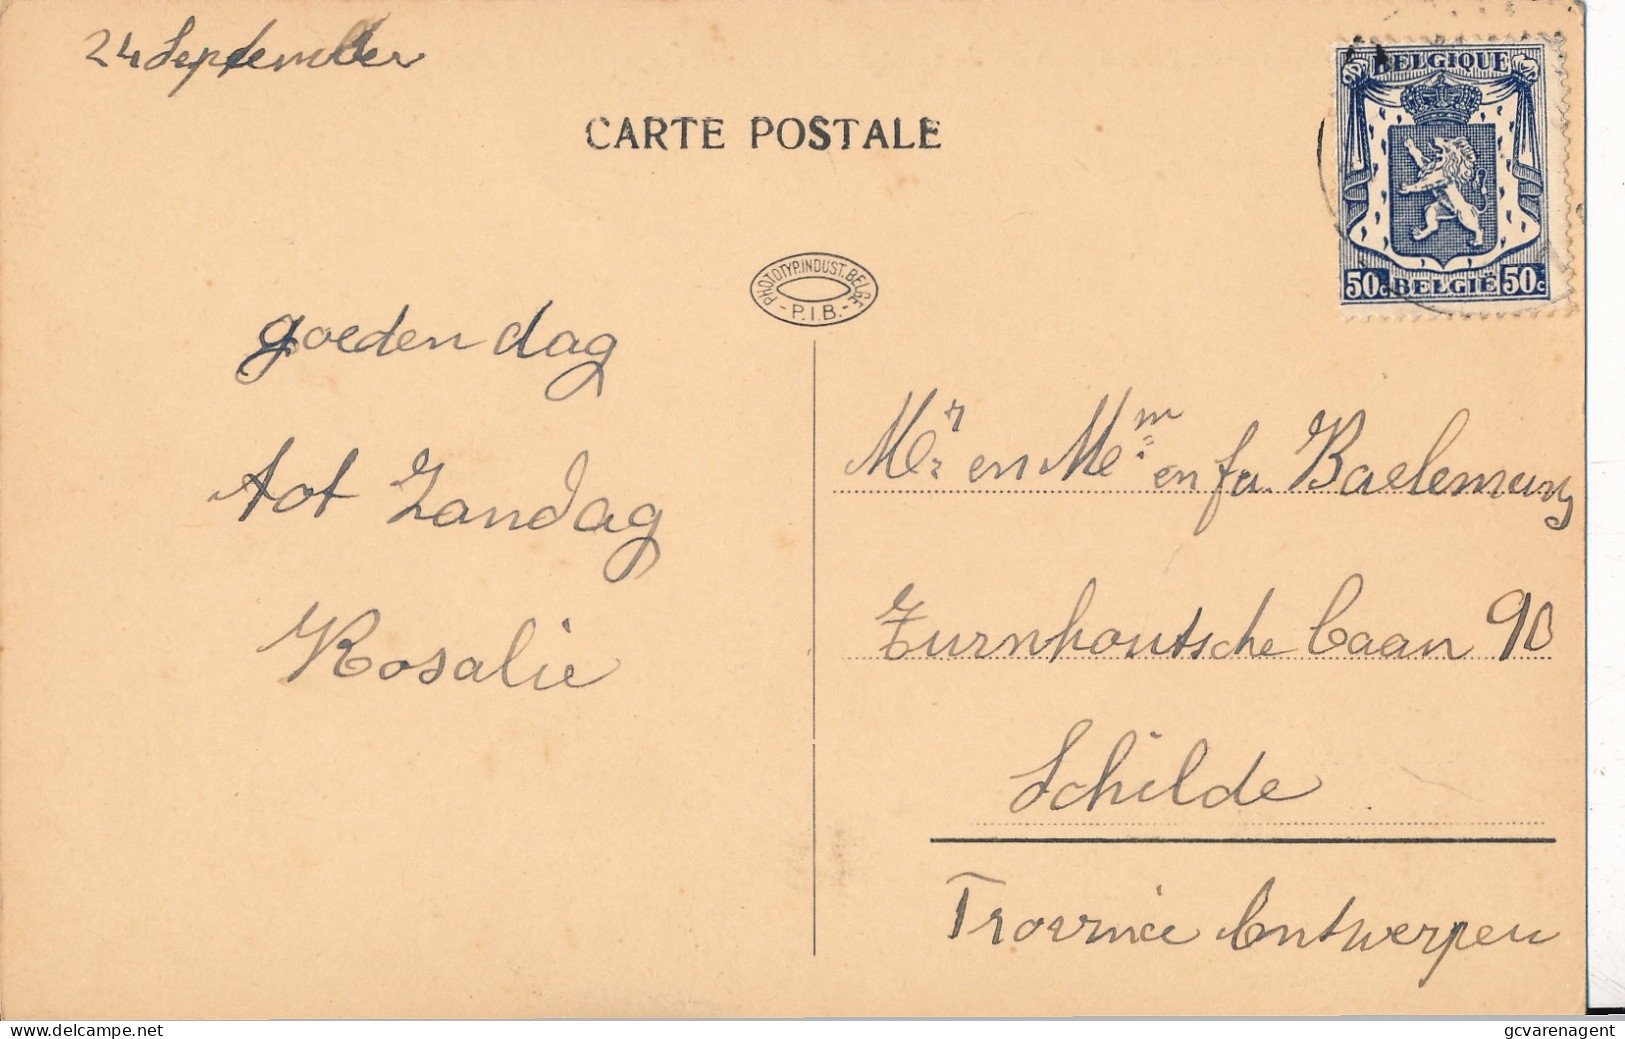 24 September
CARTE POSTALE
BELGIQUE
50c BELGIË 50c
PHOTOTYP. INDUST. BELGE
- P.I.B. -
goeden dag
tot Zondag
Rosalie
Mr en Mem en fa. Baelemans
Turnhoutsche baan 90
Schilde
Provincie Antwerpen
www.delcampe.net
gcvarenagent